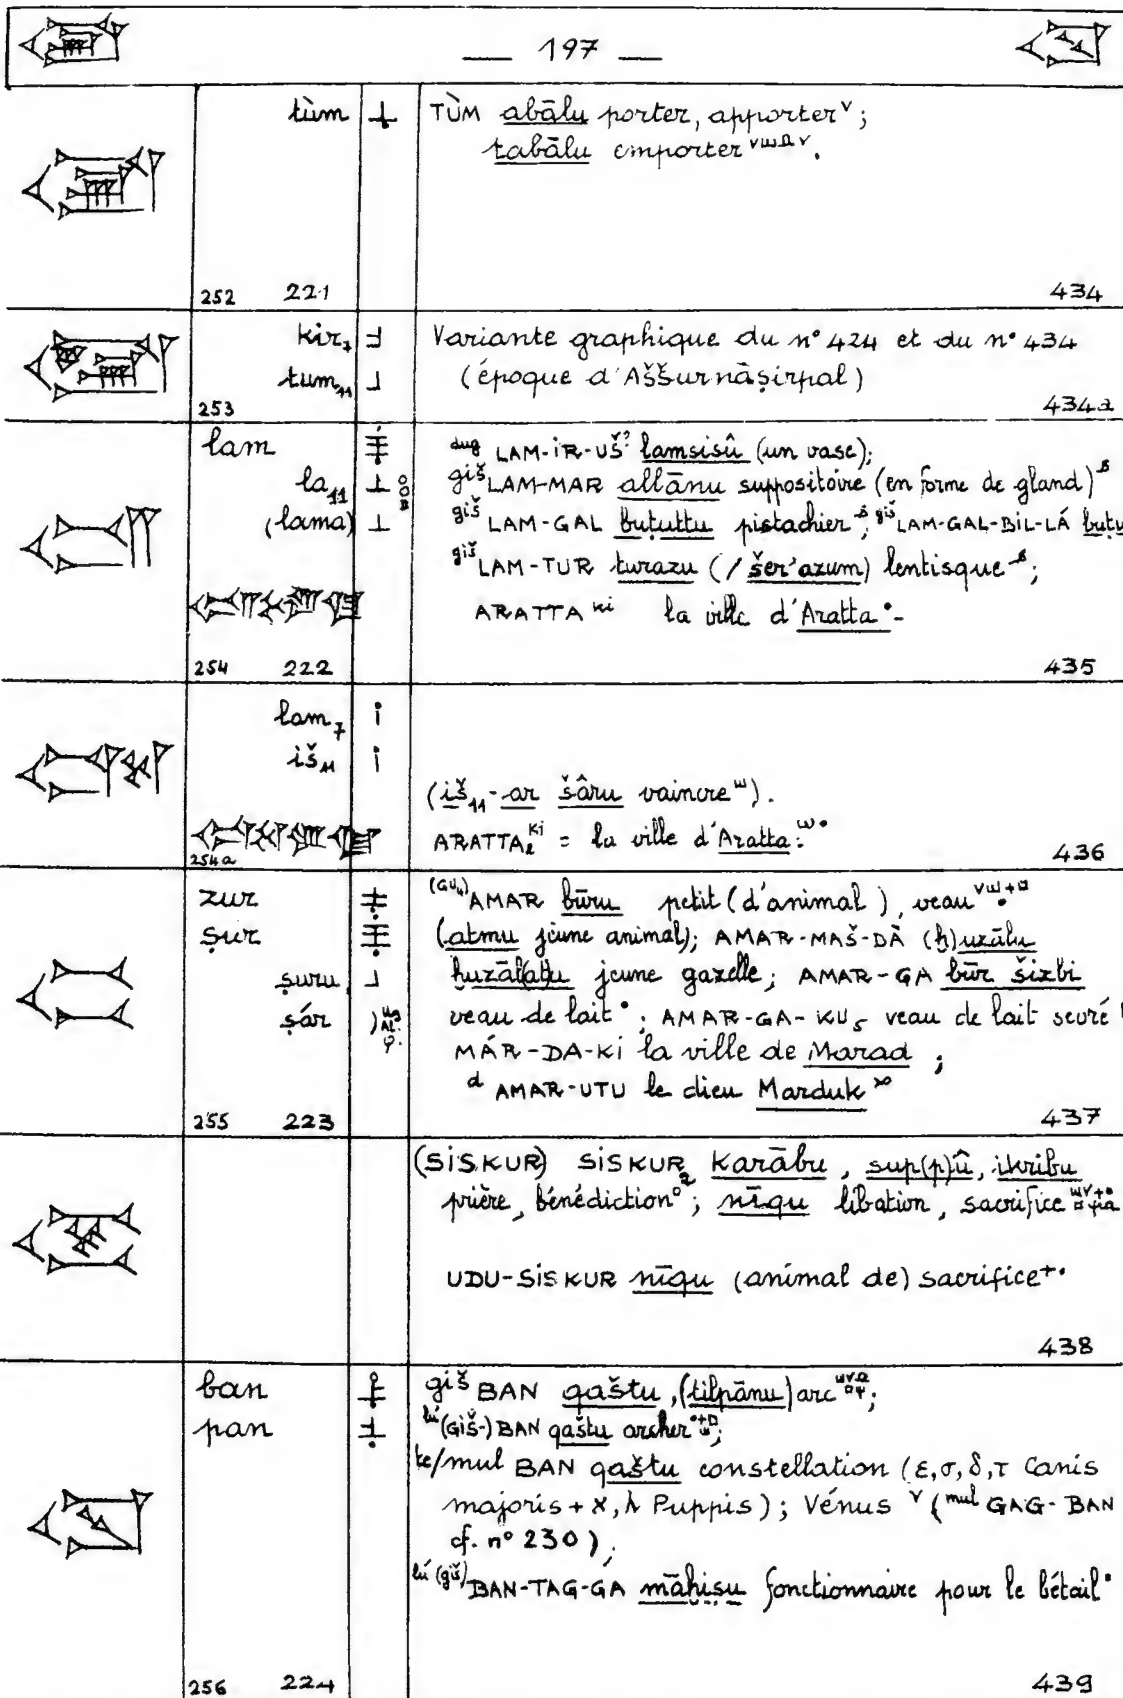 — 197 —
tùm TÙM abālu porter, apporter ᵛ;
tabālu emporter
252 221 434
kir₇ Variante graphique du n° 424 et du n° 434
tum₁₁ (époque d'Aššurnāṣirpal)
253 434a
lam dug LAM-ÌR-UŠ? lamsisû (un vase);
la₁₁ giš LAM-MAR allānu suppositoire (en forme de gland)
(lama) giš LAM-GAL buṭuttu pistachier; giš LAM-GAL-BIL-LÁ buṭu
giš LAM-TUR turazu (/ šer'azum) lentisque;
ARATTA ki la ville d'Aratta
254 222 435
lam₇
iš₁₁
(iš₁₁-ar šâru vaincre).
ARATTA₂ ki = la ville d'Aratta
254a 436
zur (GU₄) AMAR būru petit (d'animal), veau
ṣur (atmu jeune animal); AMAR-MAŠ-DÀ (ḫ)uzālu
ṣuru ḫuzāl(at)u jeune gazelle; AMAR-GA būr šizbi
ṣár veau de lait; AMAR-GA-KU₅ veau de lait sevré
MÁR-DA-KI la ville de Marad;
d AMAR-UTU le dieu Marduk
255 223 437
(SISKUR) SISKUR₂ karābu, sup(p)û, ikribu
prière, bénédiction; nīqu libation, sacrifice
UDU-SISKUR nīqu (animal de) sacrifice
438
ban giš BAN qaštu, (tilpānu) arc;
pan lú (GIŠ-) BAN qaštu archer;
te/mul BAN qaštu constellation (ε, σ, δ, τ Canis
majoris + ϰ, λ Puppis); Vénus ᵛ (mul GAG-BAN
cf. n° 230);
lú (giš) BAN-TAG-GA māḫiṣu fonctionnaire pour le bétail
256 224 439